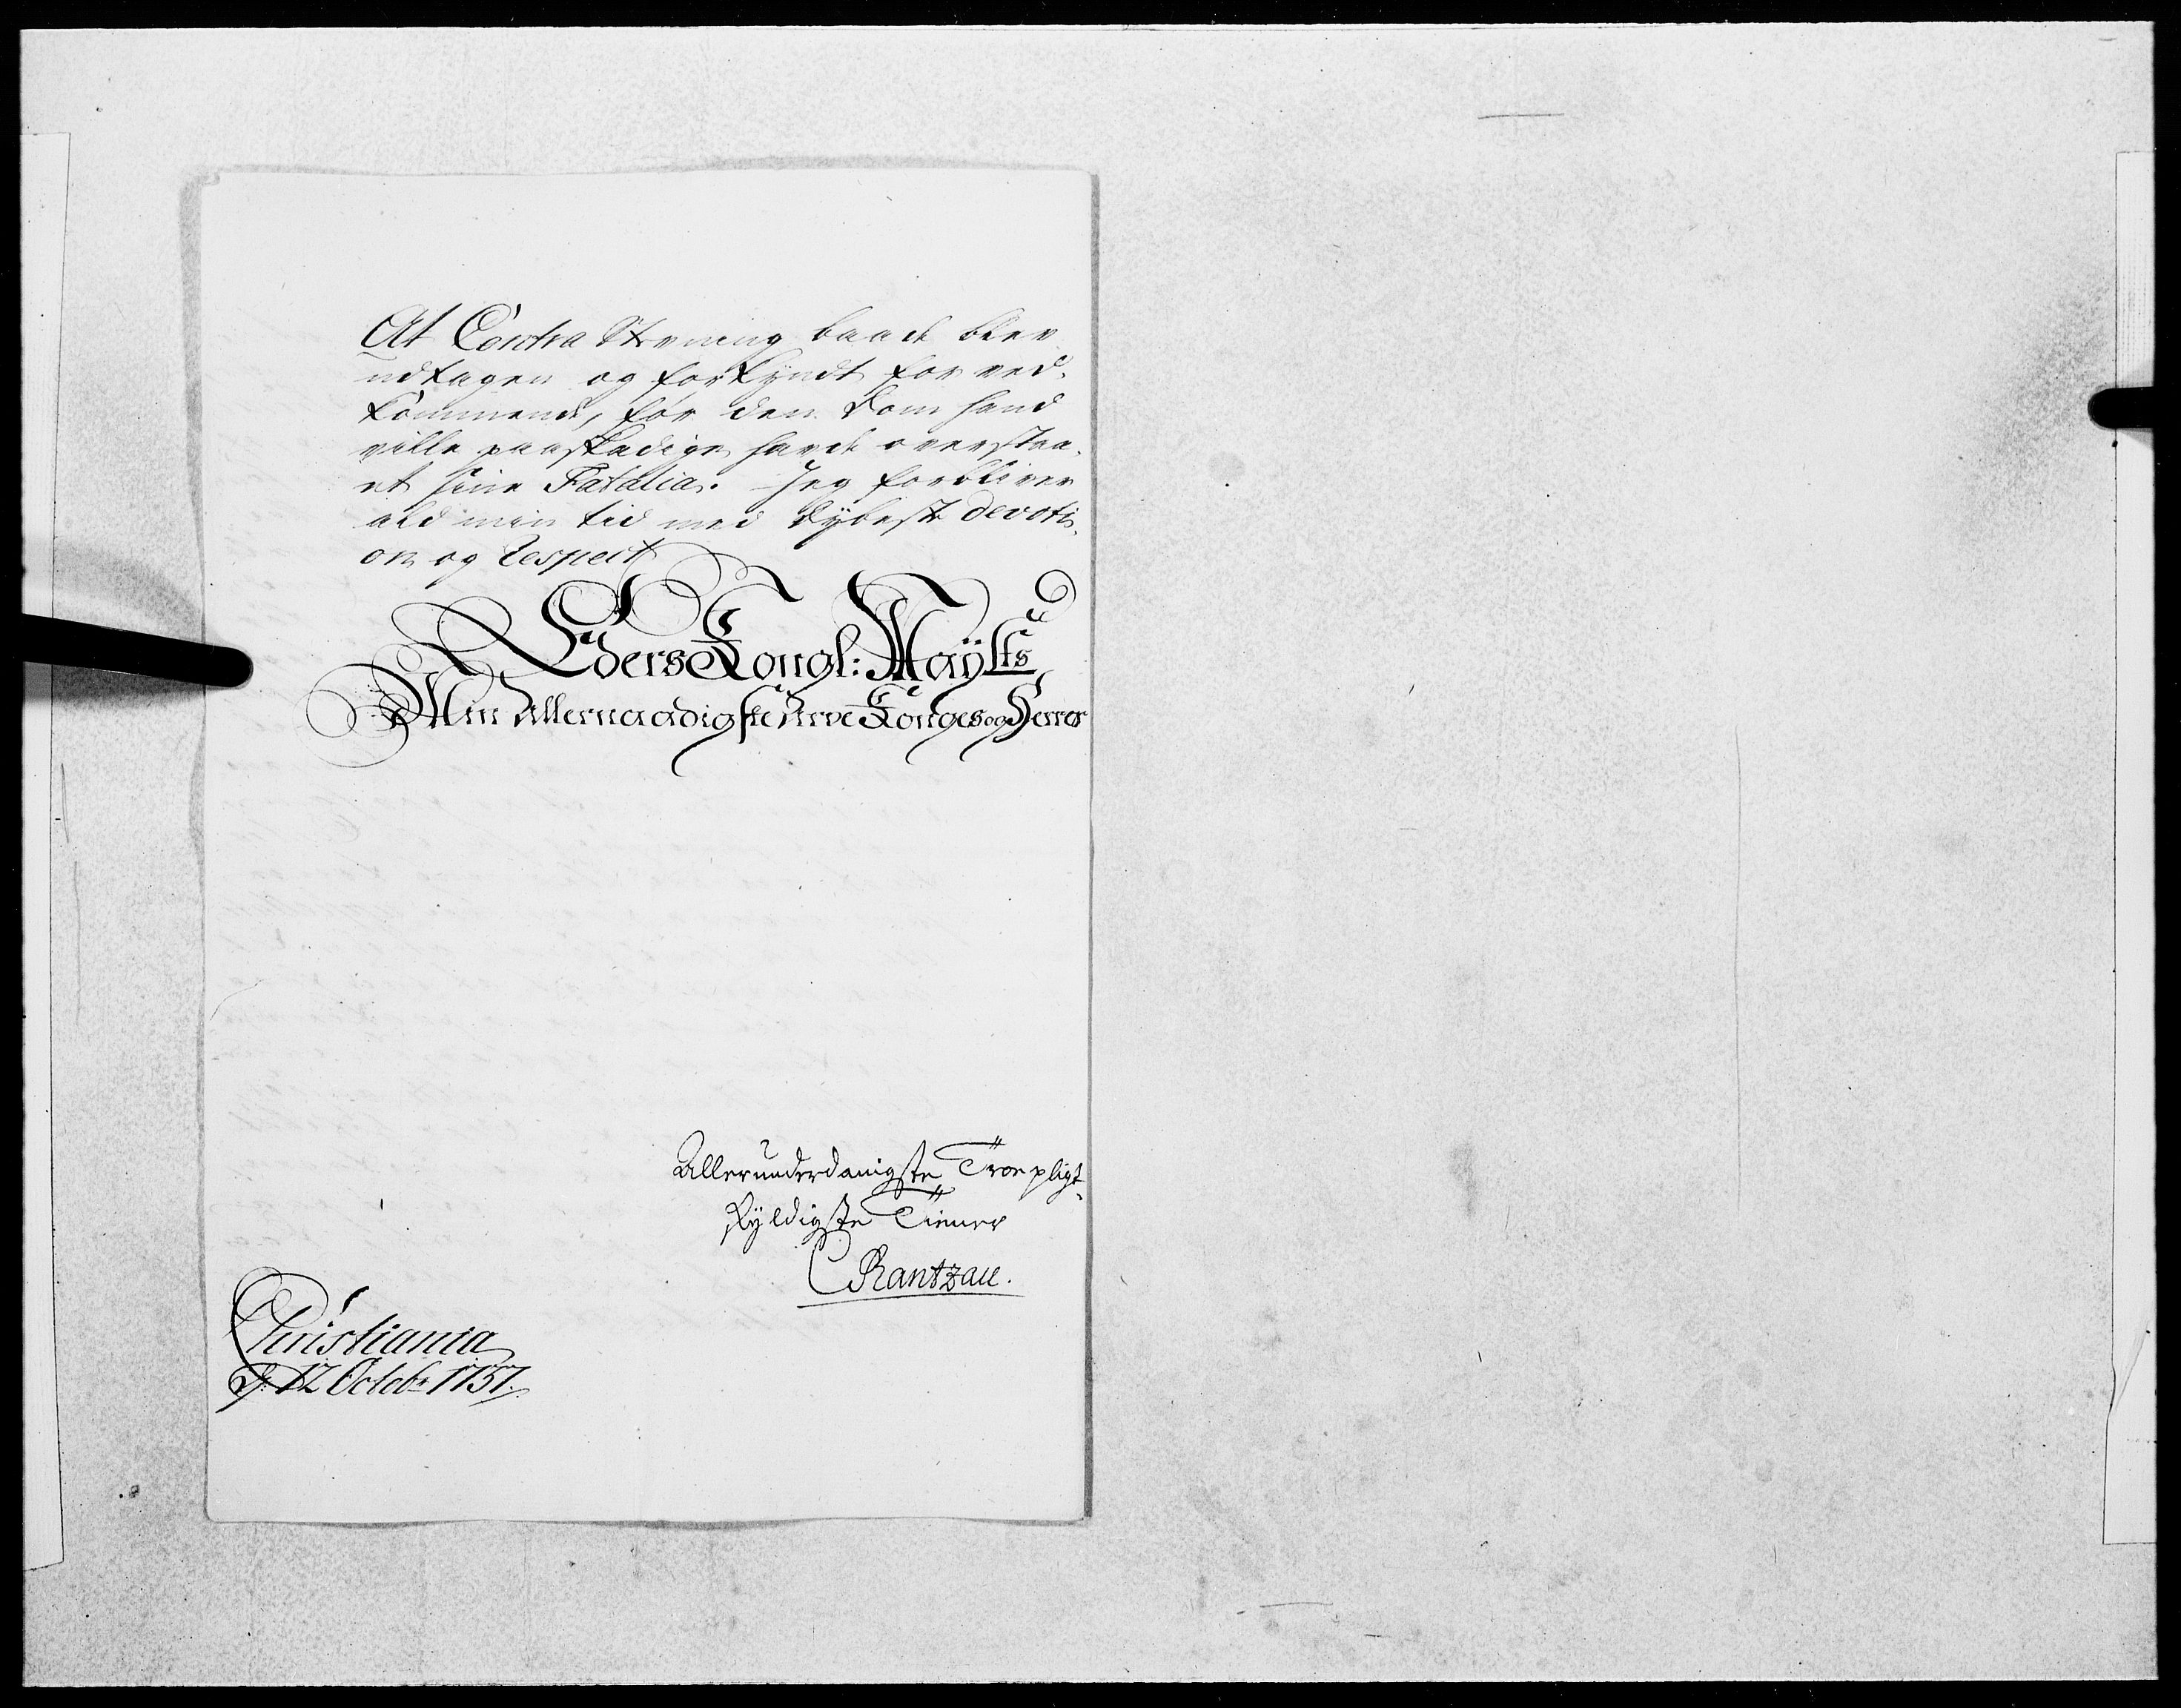 At Contra Stevning baade blev
udtagen og forkyndt for ved-
kommende, før den Dom hand
ville paaskadige havde overstaa-
et sine Fatalia. Jeg forbliver
ald min tid med dybeste devoti-
on og Respect
Eders Kongl: Maÿtts
Min Allernaadigste Arve Konges og Herres
Allerunderdanigste Troe pligt-
skyldigste Tiener
CRantzau.
Christiania
d: 12 Octobr 1737.